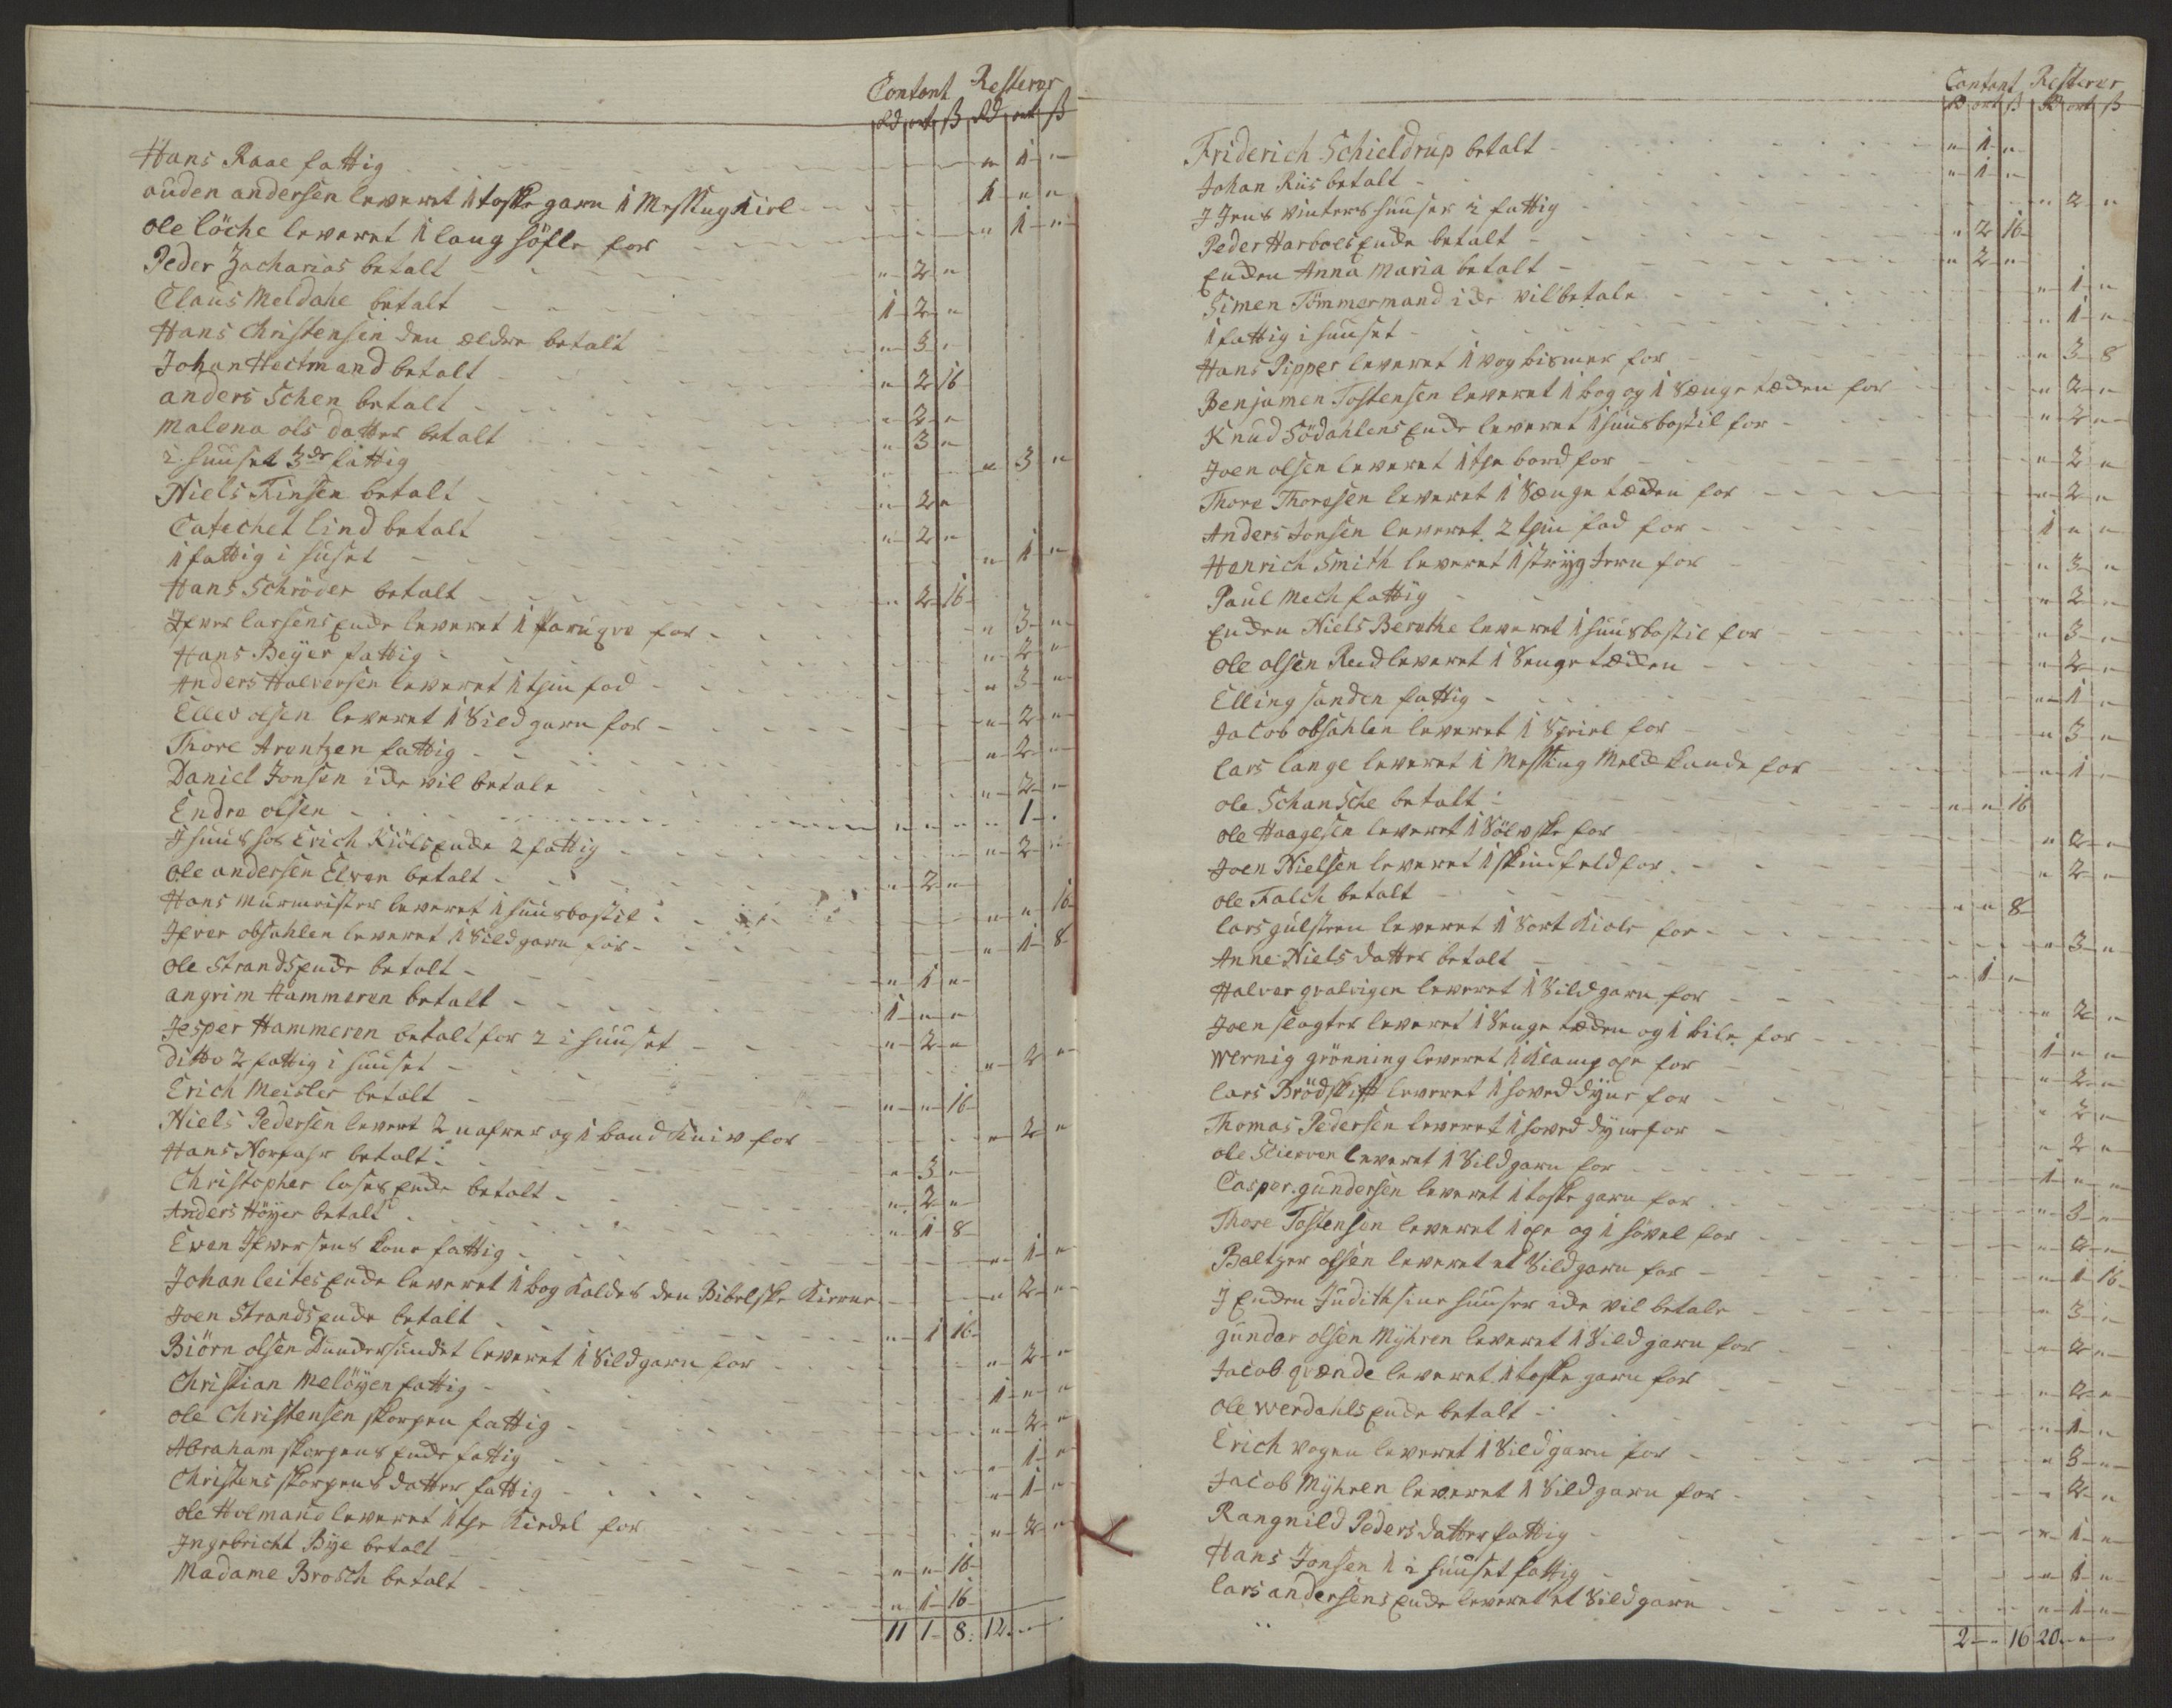 Contant Resterer
Rd ort ß Rd ort ß
Hans Raae fattig " 1 "
auden andersen leweret 1 toske garn 1 Messing Kiel 1 " "
ole löche leweret 1 laug söfle for " 1 "
Peder Zacharias betalt " 2 "
Claus Meldahe betalt 1 2 "
Hans Christensen den ældre betalt " 3 "
Johan Hectmand betalt " 2 16
anders Schen betalt " 2 "
Malena ols datter betalt " 3 "
i huuset 3de fattig " 3 "
Niels Finsen betalt " 2 "
Catechet lind betalt " 2 "
1 fattig i huset " 1 "
Hans Schröder betalt " 2 16
Ifver larsens Enke leweret 1 for " 3 "
Hans Beyer fattig " 2 "
Anders Halversen leweret 1 thin fad " 3 "
Ellev olsen leweret 1 Sildgarn for " 2 "
Thore Arentzen fattig " 2 "
Daniel Jonsen ide vil betale " 2 "
Endre olsen " " " " 1 "
I huus hos Erich Kiöls Enke 2 fattig " 2 "
ole andersen Elven betalt " 2 "
Hans Murmeister leweret 1 huusbostil " " 16
Ifver obsahlen leweret 1 Sildgarn for " 1 8
ole Strands Enke betalt " 1 "
angrim Hammeren betalt 1 " "
Jesper Hammeren betalt for 2 i huuset " 2 "
ditto 2 fattig i huuset " 2 "
Erich Meisler betalt " " 16
Niels Pedersen levert 2 nafrer og 1 baand Kniv for " 2 "
Hans Norfahr betalt " 3 "
Christopher loses Enke betalt " 2 "
Anders Höyer betalt " 1 8
Even Ifwersens Kone fattig " 1 "
Johan leites Enke leweret 1 bog Kaldes den Bibelske Kierne " 2 "
Joen Strands Enke betalt " 1 16
Biörn olsen Dundersundet leweret 1 Sildgarn for " 2 "
Christian Melöyen fattig 1 " "
ole Christensen skorpen fattig " 2 "
Abraham skorpens Enke fattig " 1 "
Christens skorpens datter fattig " 1 "
ole Holmand leweret 1 the Kiedel for " 2 "
Ingebricht Bye betalt " " 16
Madame Brosch betalt " 1 16
11 1 8 12 "
Contant Resterer
Rd ort ß Rd ort ß
Friderich Schieldrup betalt " 1 "
Johan Riis betalt " 1 "
I Jens vinters huuser 2 fattig " 2 "
Peder Harboes Enke betalt " 2 16
Enken Anna Maria betalt " 2 "
Simen Tömmermand ide vil betale " 1 "
1 fattig i huuset " 1 "
Hans Pipper leweret 1 vog bismer for " 3 8
Benjamen Tostensen leweret 1 bog og 1 Senge tæden for " 2 "
Knud Södahlens Enke leweret 1 huusbostil for " 2 "
Joen olsen leweret 1 the bord for " 2 "
Thore Thoresen leweret 1 Senge tæden for " 2 "
Anders Jonsen leweret 2 thin fad for 1 " "
Henrich Smith leweret 1 stryg Jern for " 3 "
Paul Mech fattig " 2 "
Enken Niels Berethe leweret 1 huusbostil for " 3 "
ole olsen Rud leweret 1 Senge tæden " 2 "
Elling sanden fattig " 1 "
Jacob obsahlen leweret 1 Speiel for " 3 "
lars lange leweret 1 Messing Melk Kande for " 1 "
ole Schansche betalt " " 16
ole Haagesen leweret 1 Sölv ske for " 2 "
Joen Nielsen leweret 1 skindfeld for " 2 "
ole Falch betalt " " 8
lars gulstren leweret 1 Sort Kiole for " 3 "
Anne Niels datter betalt " 1 "
Halver leweret 1 Sildgarn for " 2 "
Joen slagter leweret 1 Senge tæden og 1 bile for 1 " "
wernig grönning leweret 1 Klamp oxe for " 2 "
lars Brödskift leweret 1 hoved dyne for " 2 "
Thomas Pedersen leweret 1 hoved dyne for " 2 "
ole Scierven leweret 1 Sildgarn for 1 " "
Casper gundersen leweret 1 toske garn for " 3 "
Thore Tostensen leweret 1 oxe og 1 hövel for " 2 "
Baltzer olsen leweret et Sildgarn for " 1 16
I Enken Judith sine huuser ide vil betale " 3 "
gunder olsen Myhren leweret 1 Sildgarn for " 2 "
Jacob qvænde leweret 1 toske garn for " 2 "
ole werdahls Enke betalt " 1 "
Erich vogen leweret 1 Sildgarn for " 3 "
Jacob Myhren leweret 1 Sildgarn for " 2 "
Rangnild Peders datter fattig " 1 "
Hans Jonsen 1 i huuset fattig " 1 "
lars andersens Enke leweret et Sildgarn " 1 "
2 " 16 20 " "